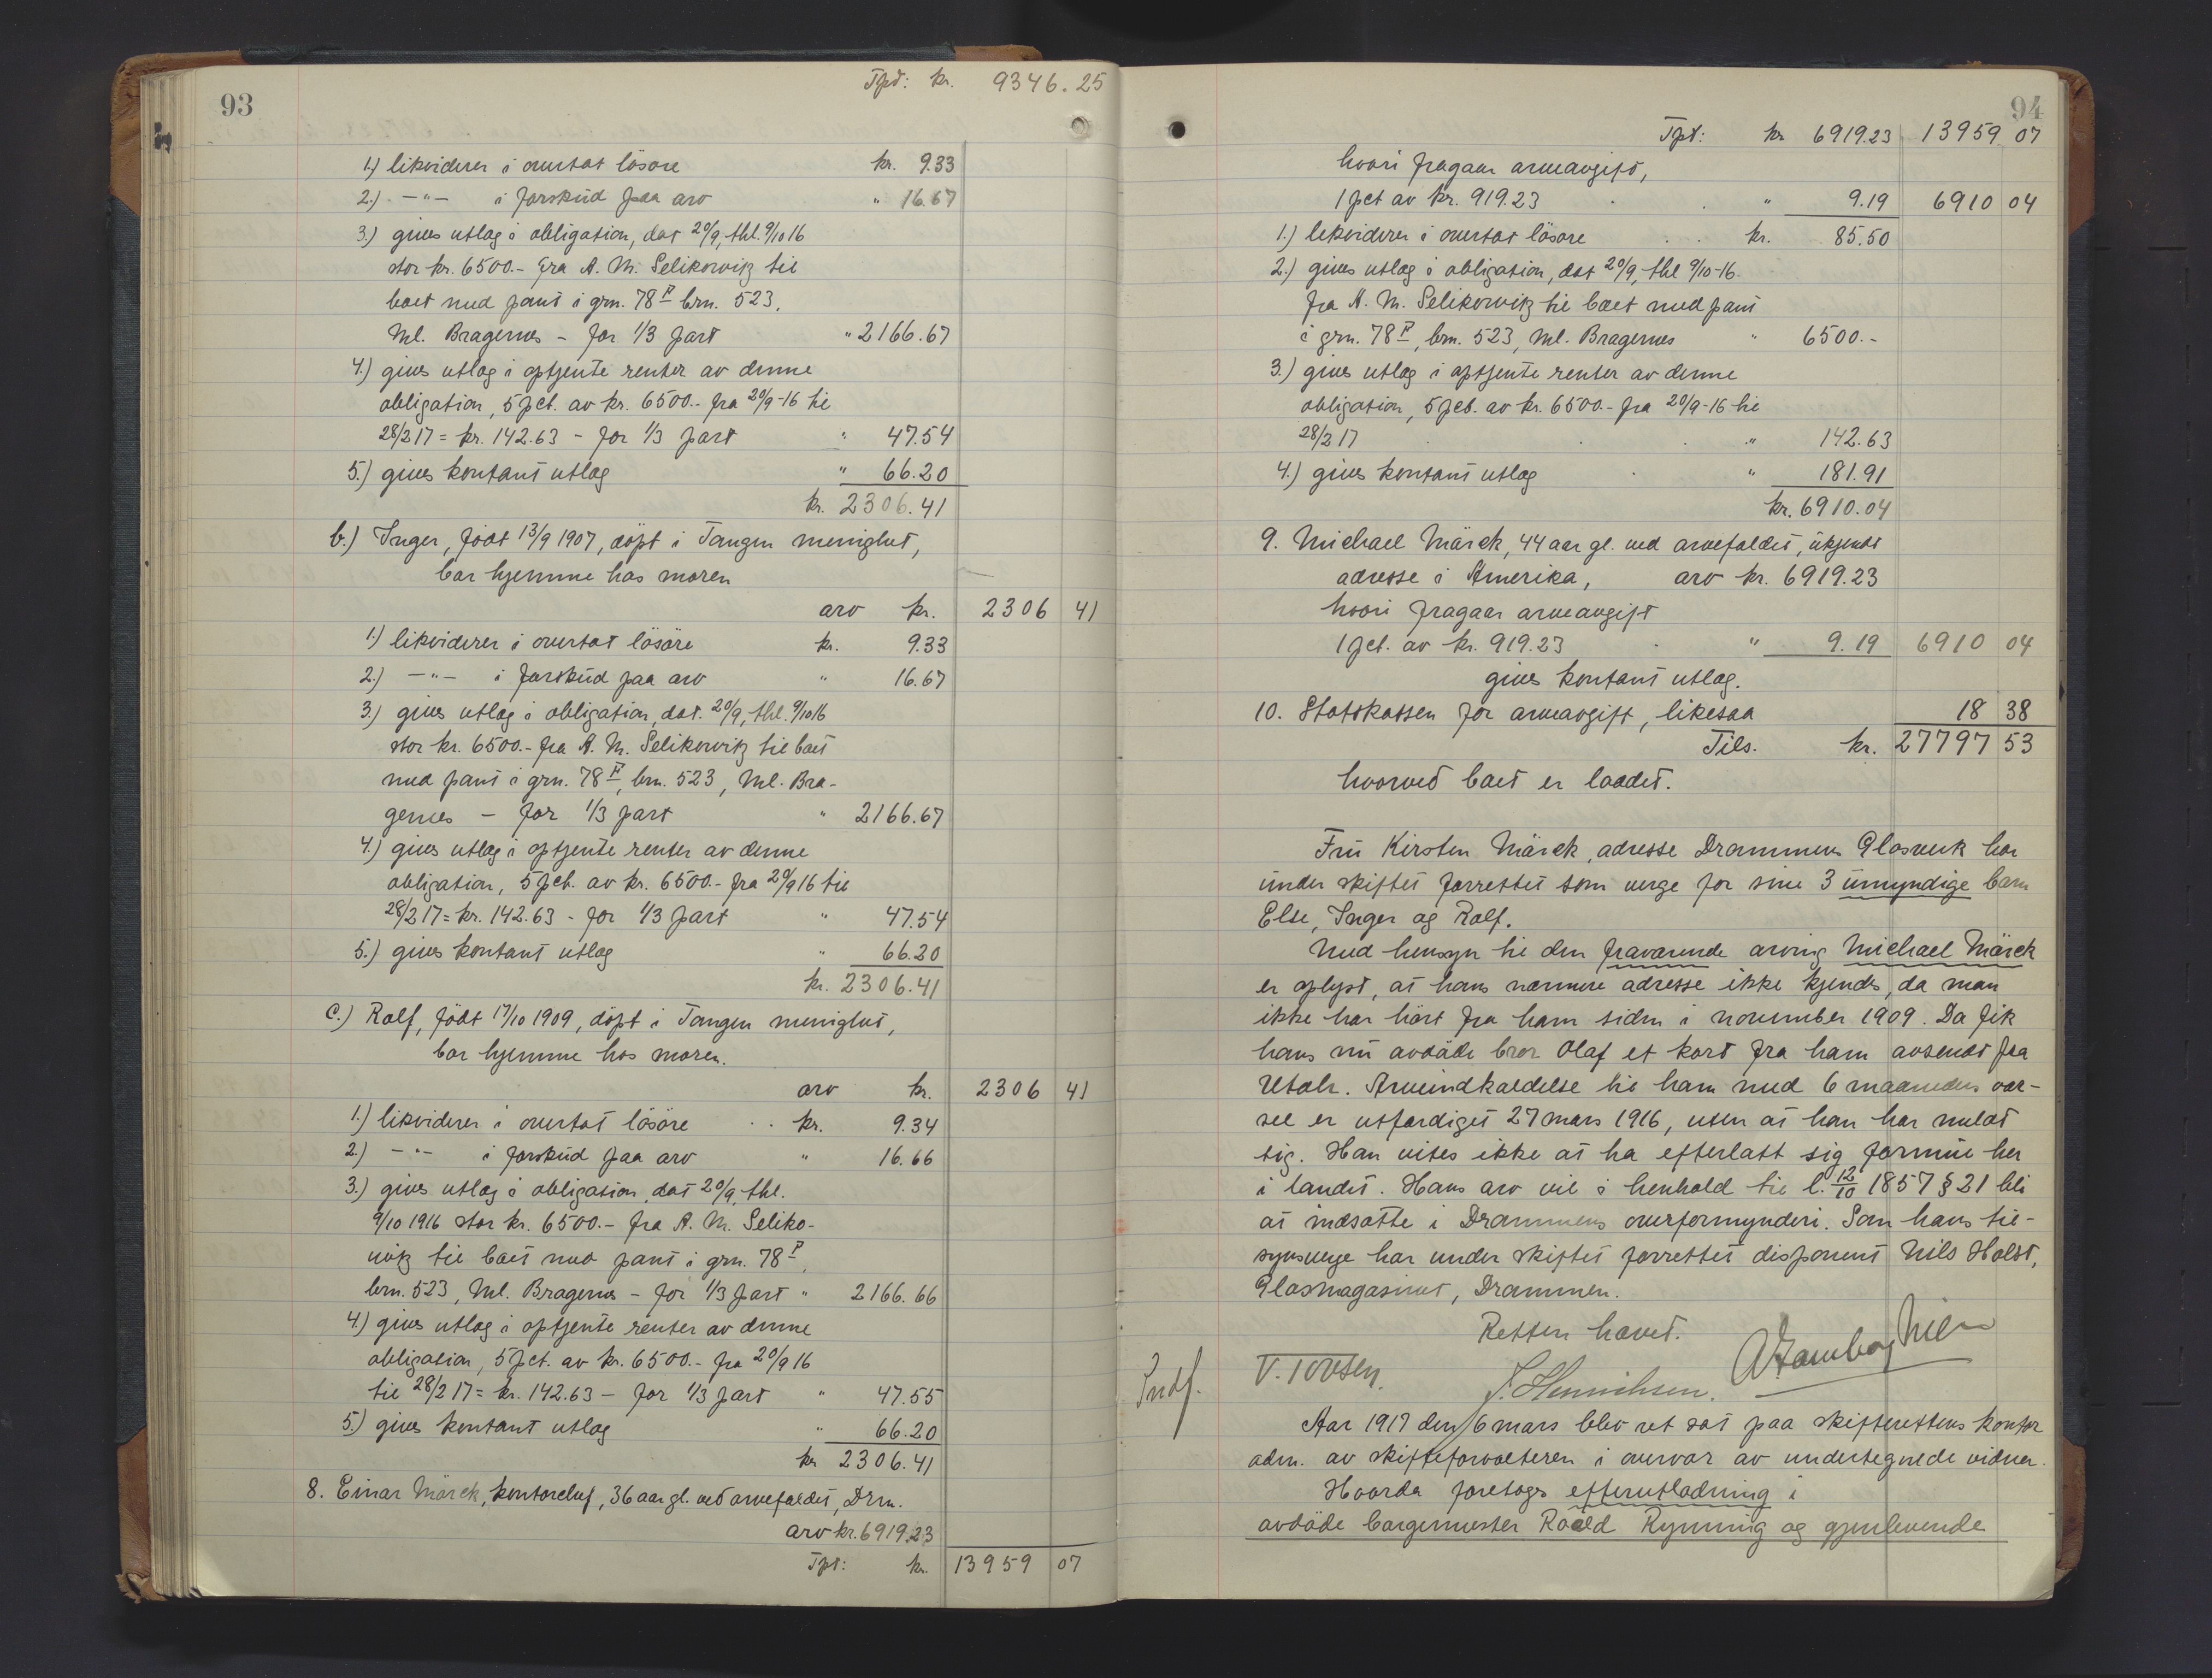 93
Tpt: kr. 9346.25
1.) likviderer i overtat lösöre kr. 9.33
2.) -"- i forskud paa arv " 16.67
3.) gives utlæg i obligation, dat 20/9, thl. 9/10 16
stor kr. 6500.- fra A. M. Selikowitz til
boet med pant i grn. 78 brn. 523,
Ml. Bragernes - for 1/3 part " 2166.67
4.) gives utlæg i optjente renter av denne
obligation, 5 pct. av kr. 6500.- fra 20/9-16 til
28/2 17 = kr. 142.63 - for 1/3 part " 47.54
5.) gives kontant utlæg " 66.20
kr. 2306.41
b.) Inger, född 13/9 1907, döpt i Tangen menighet,
bor hjemme hos moren
arv kr. 2306 41
1.) likviderer i overtat lösöre kr. 9.33
2.) -"- i forskud paa arv " 16.67
3.) gives utlæg i obligation, dat. 20/9, thl. 9/10 16
stor kr. 6500.- fra A. M. Selikowitz til boet
med pant i grn. 78, brn. 523, Ml. Bra-
gernes - for 1/3 part " 2166.67
4.) gives utlæg i optjente renter av denne
obligation, 5 pct. av kr. 6500.- fra 20/9 16 til
28/2 17 = kr. 142.63 - for 1/3 part " 47.54
5.) gives kontant utlæg " 66.20
kr. 2306.41
c.) Rolf, födt 17/10 1909, döpt i Tangen menighet,
bor hjemme hos moren.
arv kr. 2306 41
1.) likviderer i overtat lösöre kr. 9.34
2.) -"- i forskud paa arv " 16.66
3.) gives utlæg i obligation dat 20/9, thl.
9/10 1916 stor kr. 6500.- fra A. M. Seliko-
witz til boet med pant i grn. 78,
brn. 523, Ml. Bragernes - for 1/3 part " 2166.66
4.) gives utlæg i optjente renter av denne
obligation, 5 pct. av kr. 6500.- fra 20/9 16
til 28/2 17 = kr. 142.63 - for 1/3 part " 47.55
5.) gives kontant utlæg " 66.20
kr 2306.41
8. Einar Märck, kontorchef, 36 aar gl. ved arvefaldet, Drm.
arv kr. 6919.23
Tpt: kr. 13959 07
94
Tpt: kr 6919.23 13959 07
hvori fragaar arveavgift,
1 pct av kr. 919.23 " 9.19 6910 04
1.) likviderer i overtat lösöre kr. 85.50
2.) gives utlæg i obligation, dat 20/9, thl 9/10-16
fra A. M. Selikowitz til boet med pant
i grn. 78, brn. 523, Ml. Bragernes " 6500.-
3.) gives utlæg i optjente renter av denne
obligation, 5 pct. av kr. 6500.- fra 20/9-16 til
28/2 17 " 142.63
4.) gives kontant utlæg " 181.91
kr. 6910.04
9. Michael Märck, 44 aar gl. ved arvefaldet, ukjendt
adresse i Amerika, arv kr. 6919.23
hvori fragaar arveavgift
1 pct. av kr. 919.23 " 9.19 6910 04
gives kontant utlæg.
10. Statskassen for arveavgift, likesaa 18 38
Tils. kr. 27797 53
hvorved boet er laadet.
Fru Kirsten Märck, adresse Drammens Glasverk har
under skiftet forrettet som verge for sine 3 umyndige barn
Else, Inger og Rolf.
Med hensyn til den fraværende arving Michael Märck
er oplyst, at hans nærmere adresse ikke kjendes, da man
ikke har hört fra ham siden i november 1909. Da fik
hans nu avdöde bror Olaf et kort fra ham avsendt fra
Utah. Arveindkaldelse til ham med 6 maaneders var-
sel er utfærdiget 27 mars 1916, uten at han har meldt
sig. Han vites ikke at ha efterlatt sig formue her
i landet. Hans arv vil i henhold til l. 12/10 1857 § 21 bli
at indsætte i Drammens overformynderi. Som hans til-
synsverge har under skiftet forrettet disponent Nils Holst,
Glasmagasinet, Drammen.
Retten hævet.
Indf. V. Tovsen. J. Henrichsen.
Aar 1917 den 6 mars blev ret sat paa skifterettens kontor
adm. av skifteforvalteren i overvær av undertegnede vidner.
Hvorda foretoges efterutlodning i
avdöde borgermester Roald Rynning og gjenlevende